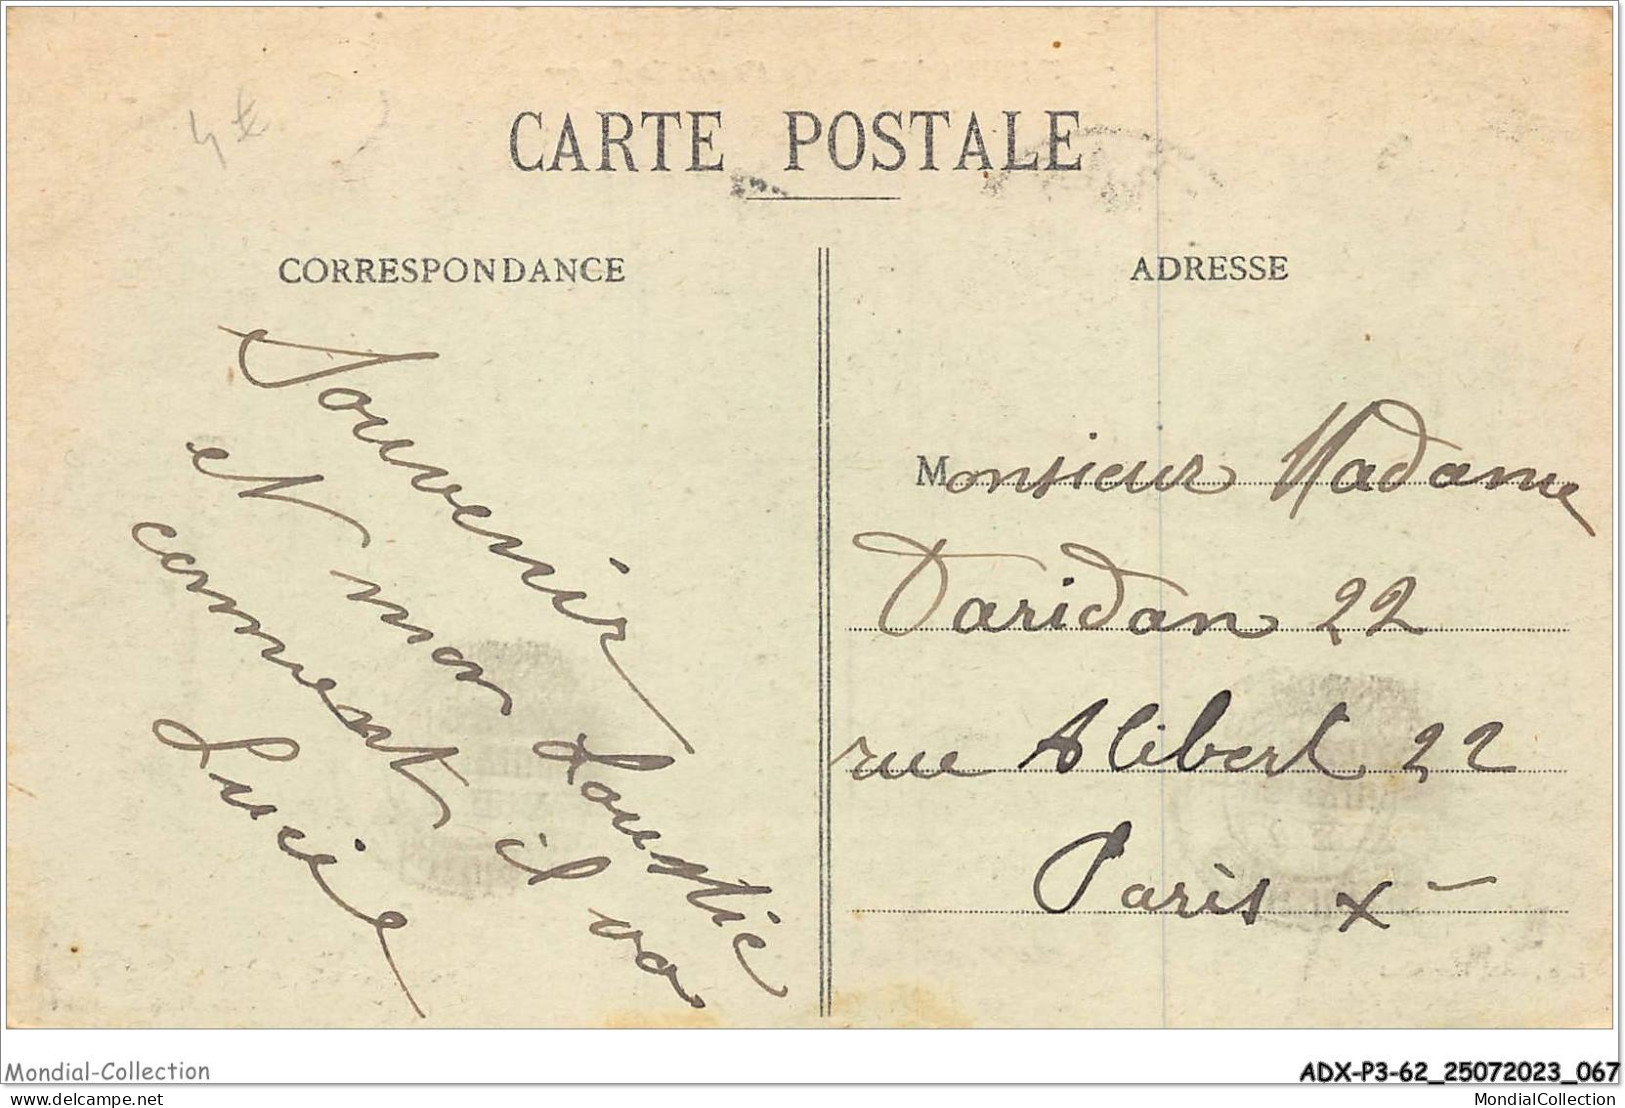 4€
CARTE POSTALE
CORRESPONDANCE
Souvenir
et mon Loustic
comment il va
Lucie
ADRESSE
Monsieur Madame
Daridan 22
rue Alibert 22
Paris X
Mondial-Collection
ADX-P3-62_25072023_067
delcampe.net
MondialCollection